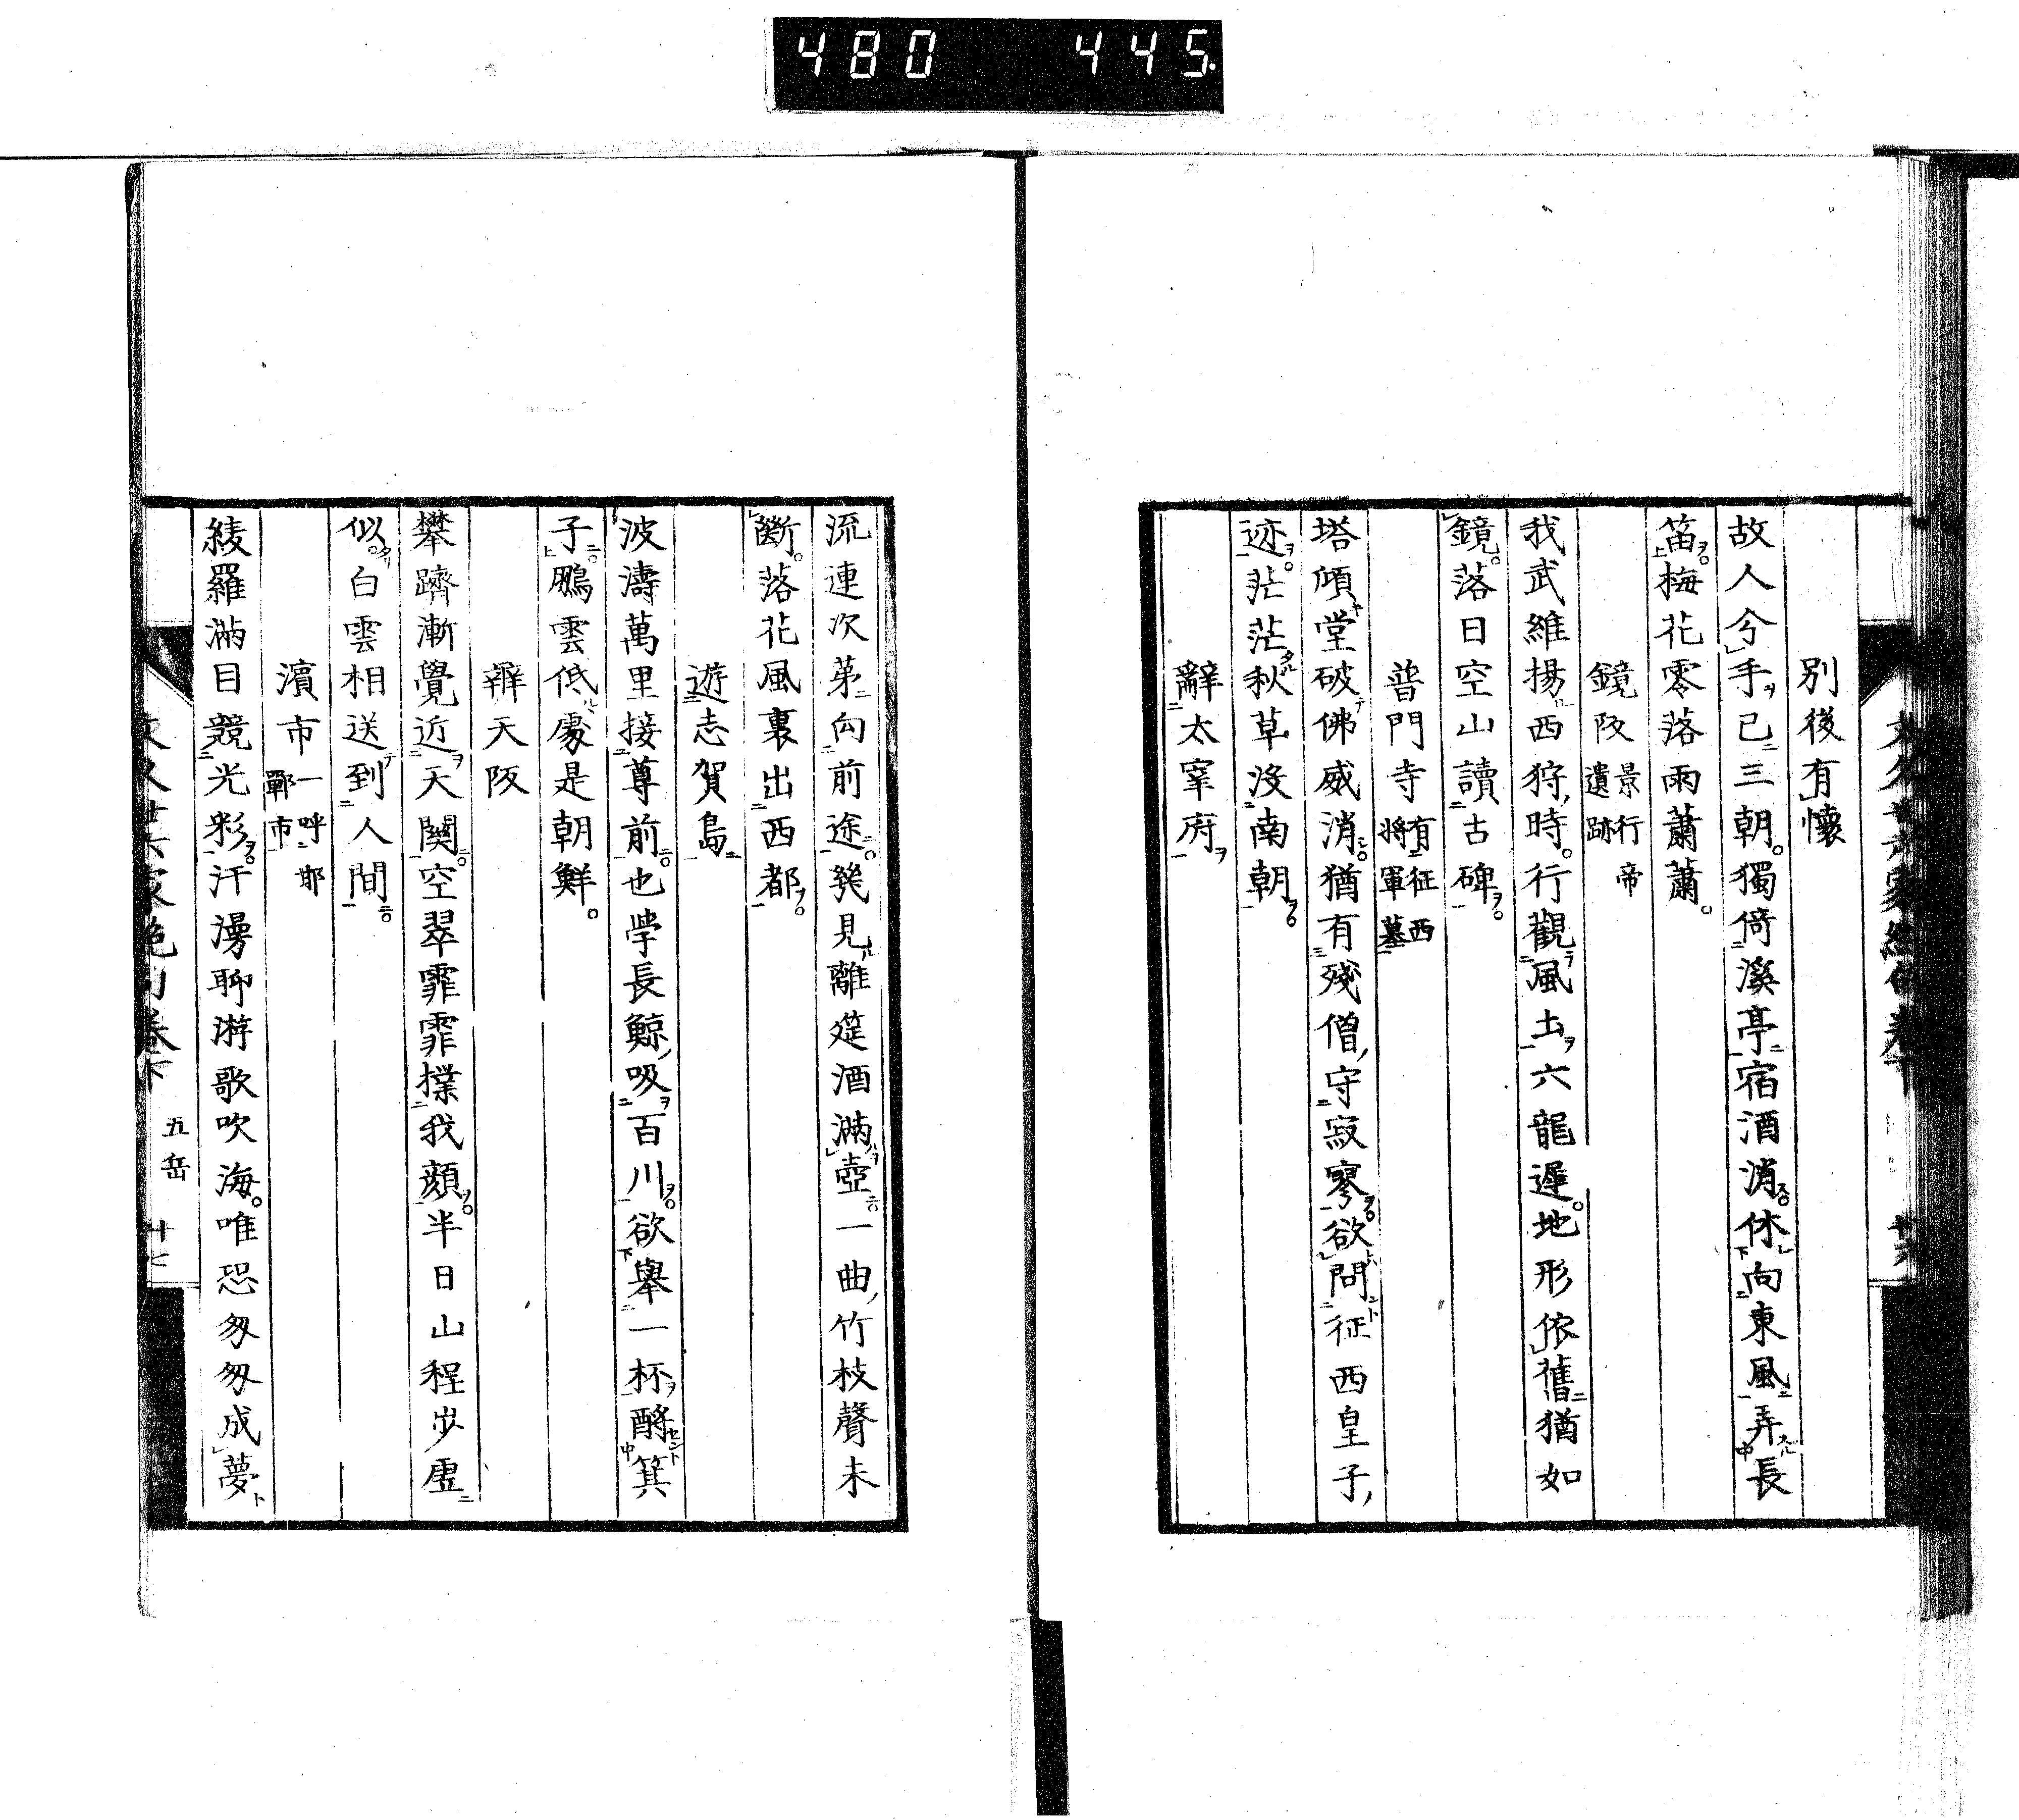 480 445
別後有懷
故人分手ヲ已ニ三朝。獨倚溪亭宿酒消。休向東風弄長
笛。梅花零落雨蕭蕭。
鏡阪 景行帝遺跡
我武維揚西狩時。行觀風土ヲ六龍遲。地形依舊猶如
鏡。落日空山讀古碑。
普門寺 有征西將軍墓
塔傾堂破佛威消。猶有殘僧守寂寥。欲問征西皇子
迹。茫茫秋草沒南朝。
辭太宰府ヲ
流連次第向前途。幾見離筵酒滿壺。一曲竹枝聲未
斷。落花風裏出西都。
遊志賀島
波濤萬里接尊前。也學長鯨吸百川。欲舉一杯酹箕
子。鵬雲低處是朝鮮。
辨天阪
攀躋漸覺近天關。空翠霏霏撲我顏。半日山程步虛
似。白雲相送到人間。
濱市 一呼邯鄲市
綾羅滿目競光彩。汗漫聊游歌吹海。唯恐匆匆成夢
五岳